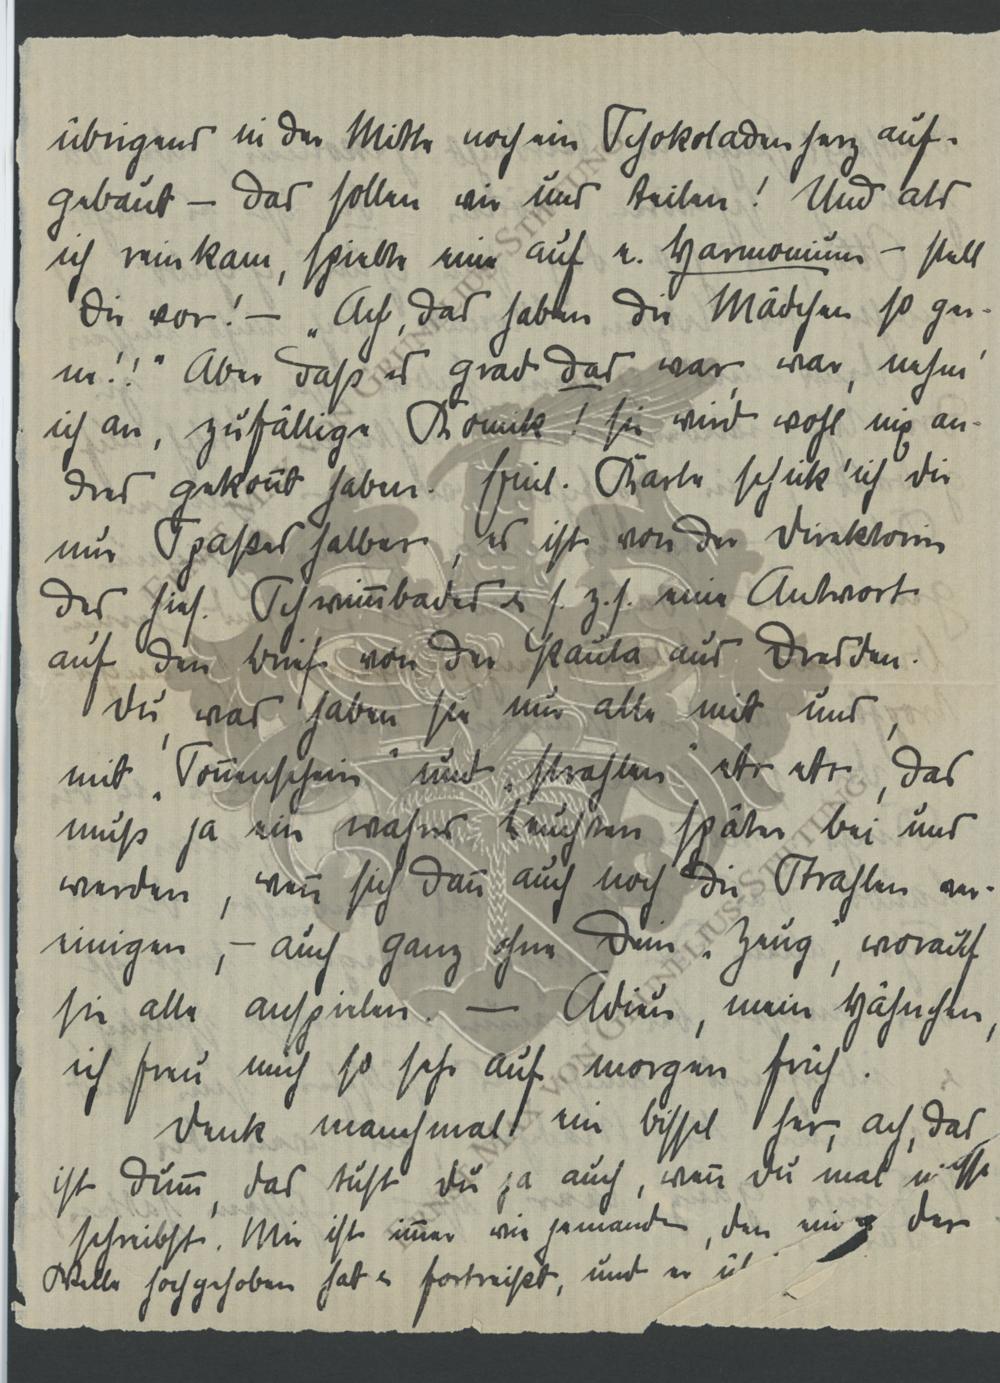 übrigens in der Mitte noch ein Schokoladenherz auf-
gebaut – das sollen wir uns teilen! Und als
ich reinkam, spielte eine auf e. Harmonium – stell
Dir vor! – „Ach, das haben die Mädchen so ger-
ne!!" Aber daß es grad das war, war, nehm'
ich an, zufällige Komik! Sie wird wohl nix an-
dres gekon̄t haben. Karte schick' ich Dir
nur Spaßes halber, es ist von der Direktorin
des hies. Schwim̄bades & s. z. s. eine Antwort
auf den Brief von der Paula aus Dresden.
Du, was haben sie nur alle mit uns,
mit „Son̄enschein" und „strahlen" etc etc, das
muß ja ein wahres Leuchten später bei uns
werden, wen̄ sich dan̄ auch noch die Strahlen ver-
einigen, – auch ganz ohne Dein „Zeug", worauf
sie alle anspielen. — Adieu, mein Hähnchen,
ich freu mich so sehr auf morgen früh.
Denk manchmal ein bissel her, ach, das
ist dum̄, das tust Du ja auch, wen̄ Du mal
schreibst. Mir ist im̄er wie jemandem, den der
Welle hochgehoben hat & fortreißt, und er